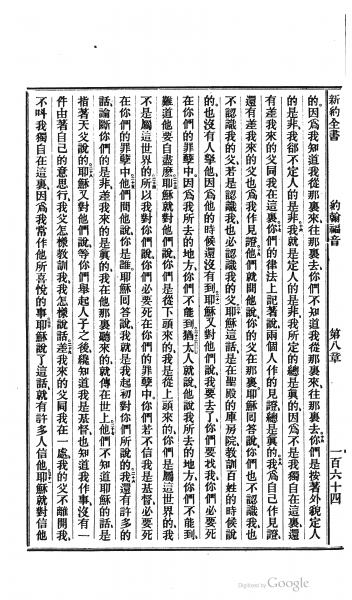 新約全書 約翰福音 第八章 一百六十四
的、因爲我知道我從那裏來往那裏去、你們不知道我從那裏來往那裏去、你們是按著外貌定人
的是非、我卻不定人的是非、我就是定人的是非、我所定的總是眞的、因爲不是我獨自在這裏、還
有差我來的父同我在這裏、你們的律法上記著說、兩個人作的見證總是眞的、我爲自己作見證、
還有差我來的父也爲我作見證、他們就問他說、你的父在那裏、耶穌回答說、你們也不認識我、也
不認識我的父、若是認識我、也必認識我的父、耶穌這話是在聖殿的庫房院教訓百姓的時候說
的、也沒有人拏他、因爲他的時候還沒有到、耶穌又對他們說、我要去了、你們要找我、你們必要死
在你們的罪孽中、因爲我所去的地方、你們不能到、猶太人就說、他說我所去的地方你們不能到、
難道他要自盡麽、耶穌就對他們說、你們是從下頭來的、我是從上頭來的、你們是屬這世界的、我
不是屬這世界的、所以我對你們說、你們必要死在你們的罪孽中、你們若不信我是基督、必要死
在你們的罪孽中、他們問他說、你是誰、耶穌回答說、我就是我起初對你們所說的、我還有許多的
話、論斷你們的是非、差我來的是眞的、我在他那裏聽來的、就傳在世上、他們不知道耶穌的話是
指著天父說的、耶穌又對他們說、等你們舉起人子之後、纔知道我是基督、也知道我作事、沒有一
件由著自己的意思行、我父怎樣教訓我、我怎樣說話、差我來的父同我在一處、我的父不離開我、
不叫我獨自在這裏、因爲我常作他所喜悅的事、耶穌說了這話、就有許多人信他、耶穌就對信他
Digitized by Google